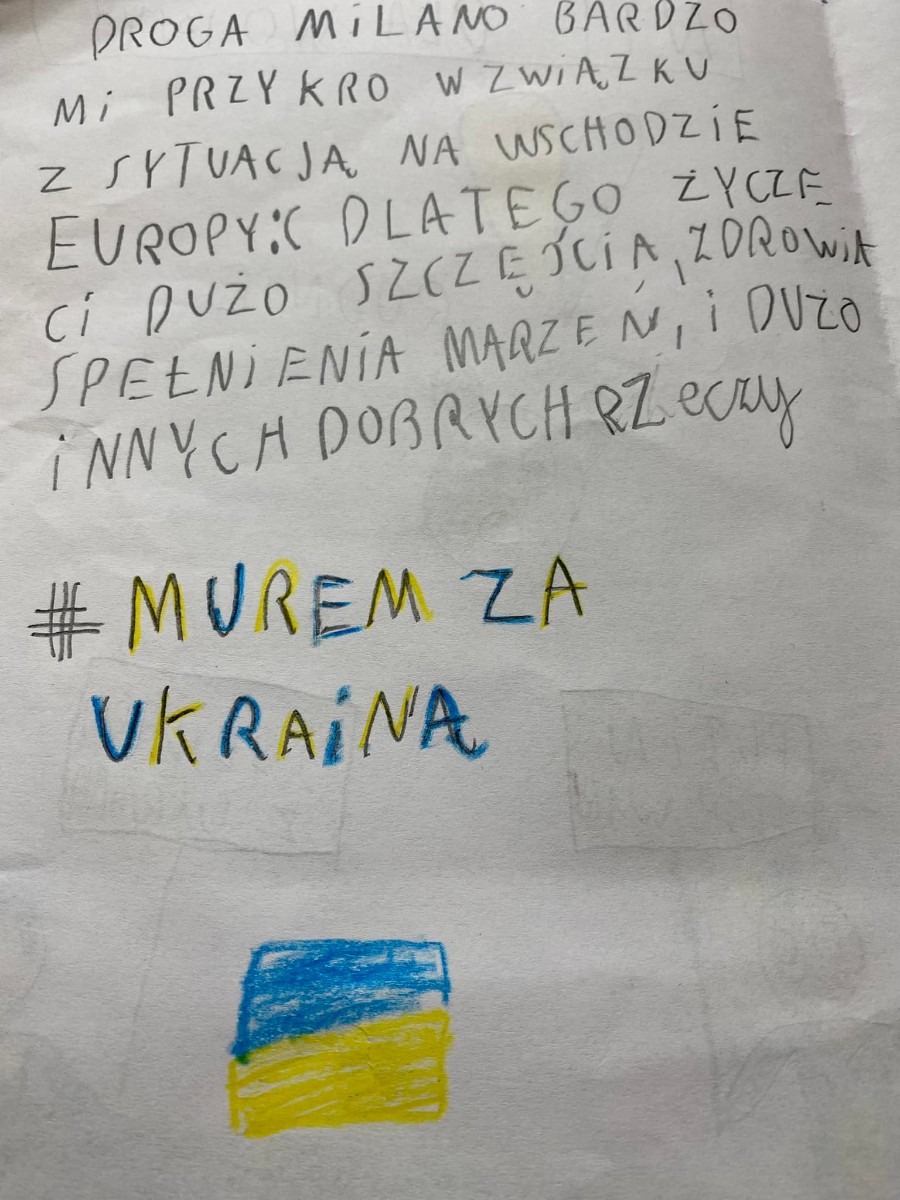 DROGA MiLANO BARDZO
Mi PRZYKRO W ZWiĄZKU
Z SYTUACJĄ NA WSCHODZiE
EUROPY:( DLATEGO ŻYCZĘ
Ci DUŻO SZCZĘŚCiA, ZDROWiA
SPEŁNiENiA MARZEŃ, i DUŻO
iNNYCH DOBRYCH RZeczy
# MUREM ZA
UKRAiNĄ